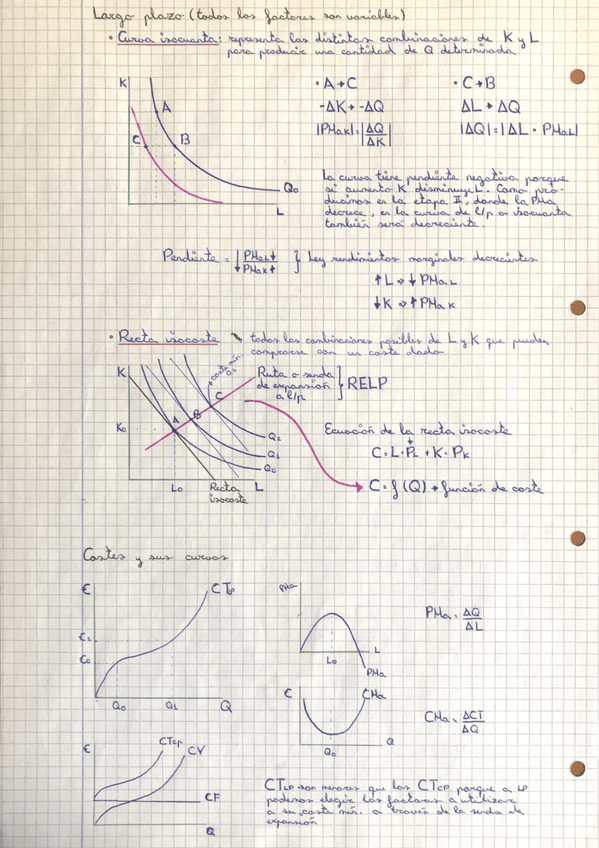 Largo plazo (todos los factores son variables)
• Curva isocuanta: representa las distintas combinaciones de K y L
para producir una cantidad de Q determinada
K
A
C
B
Q₀
L
• A→C
-ΔK→-ΔQ
|PMaK|=|ΔQ/ΔK|
• C→B
ΔL→ΔQ
|ΔQ|=|ΔL·PMaL|
La curva tiene pendiente negativa porque
si aumento K disminuye L. Como pro-
ducimos en la etapa II, donde la PMa
decrece, en la curva de l/p o isocuanta
también será decreciente.
Pendiente = |PMaL↓/↓PMaK↑| } Ley rendimientos marginales decrecientes
↑L ⇒ ↓PMaL
↓K ⇒ ↑PMaK
• Recta isocoste → todas las combinaciones posibles de L y K que pueden
comprarse con un coste dado
K
K₀
A
B
C
coste mín.
Q₂
Q₁
Q₀
L₀
Recta
isocoste
L
Ruta o senda
de expansión
a l/p
} RELP
Ecuación de la recta isocoste
C=L·PL+K·PK
C=f(Q)→función de coste
Costes y sus curvas
€
CTLP
C₁
C₀
Q₀
Q₁
Q
PMa
L₀
L
PMa
PMa=ΔQ/ΔL
C
CMa
Q₀
Q
CMa=ΔCT/ΔQ
€
CTCP
CV
CF
Q
CTLP son menores que los CTCP porque a LP
podemos elegir los factores a utilizar
a su coste mín. a través de la senda de
expansión